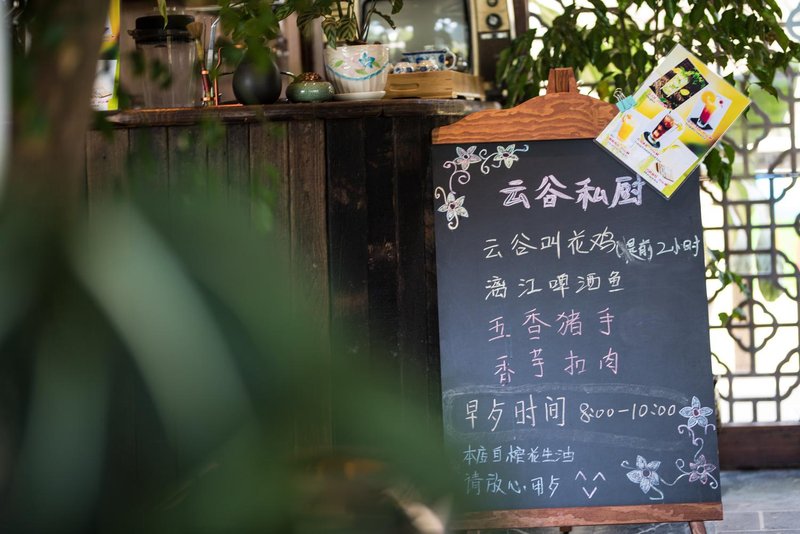 云谷私厨
云谷叫花鸡(提前2小时
漓江啤酒鱼
五香猪手
香芋扣肉
早歺时间 8:00-10:00
本店自榨花生油
请放心用歺